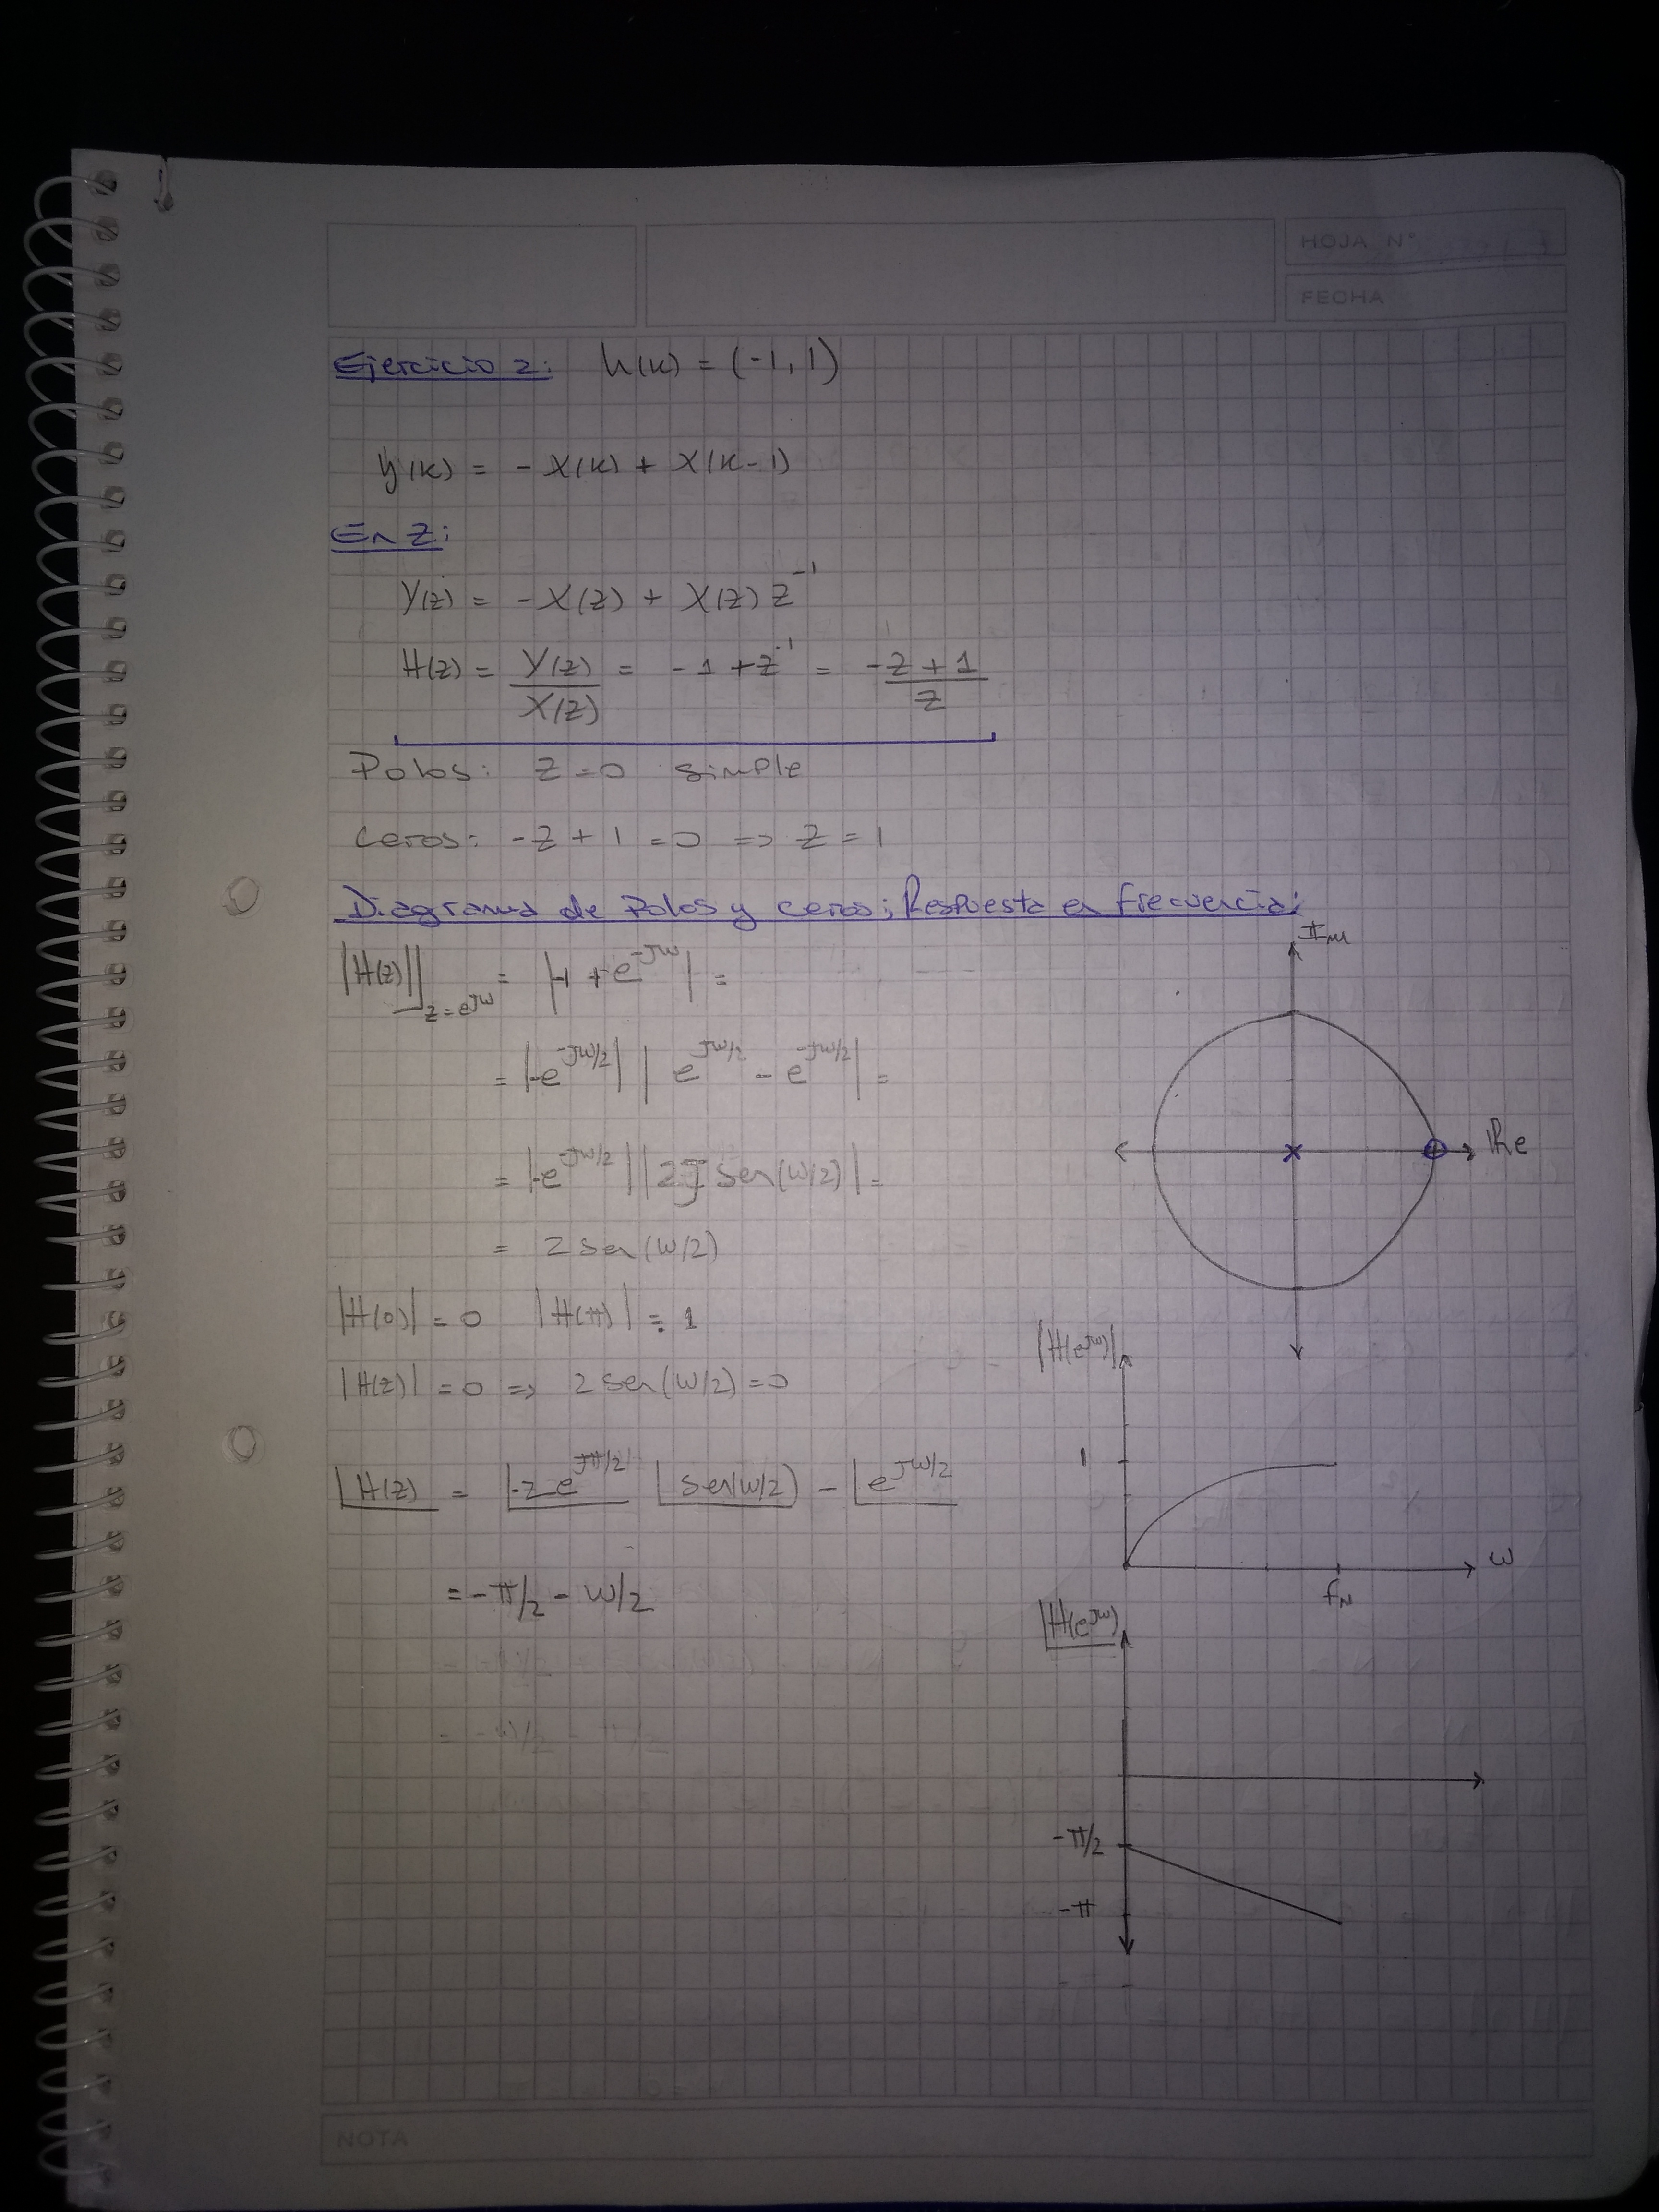 HOJA N°
FECHA
Ejercicio 2: h(k) = (-1, 1)
y(k) = - x(k) + x(k-1)
En Z:
Y(z) = - X(z) + X(z) z^-1
H(z) = Y(z)/X(z) = -1 + z^-1 = (-z + 1)/z
Polos: z=0 simple
Ceros: -z + 1 = 0 => z = 1
Diagrama de Polos y ceros; Respuesta en frecuencia:
|H(z)||z=e^jw = |-1 + e^-jw| =
= |-e^-jw/2| | e^jw/2 - e^-jw/2| =
= |-e^-jw/2| |2j sen(w/2)| =
= 2 sen(w/2)
|H(0)| = 0 |H(π)| = 1
|H(z)| = 0 => 2 sen(w/2) = 0
∠H(z) = ∠-2 e^jπ/2 ∠sen(w/2) - ∠e^jw/2
= - π/2 - w/2
Im
Re
|H(e^jw)|
1
w
fN
∠H(e^jw)
-π/2
-π
NOTA